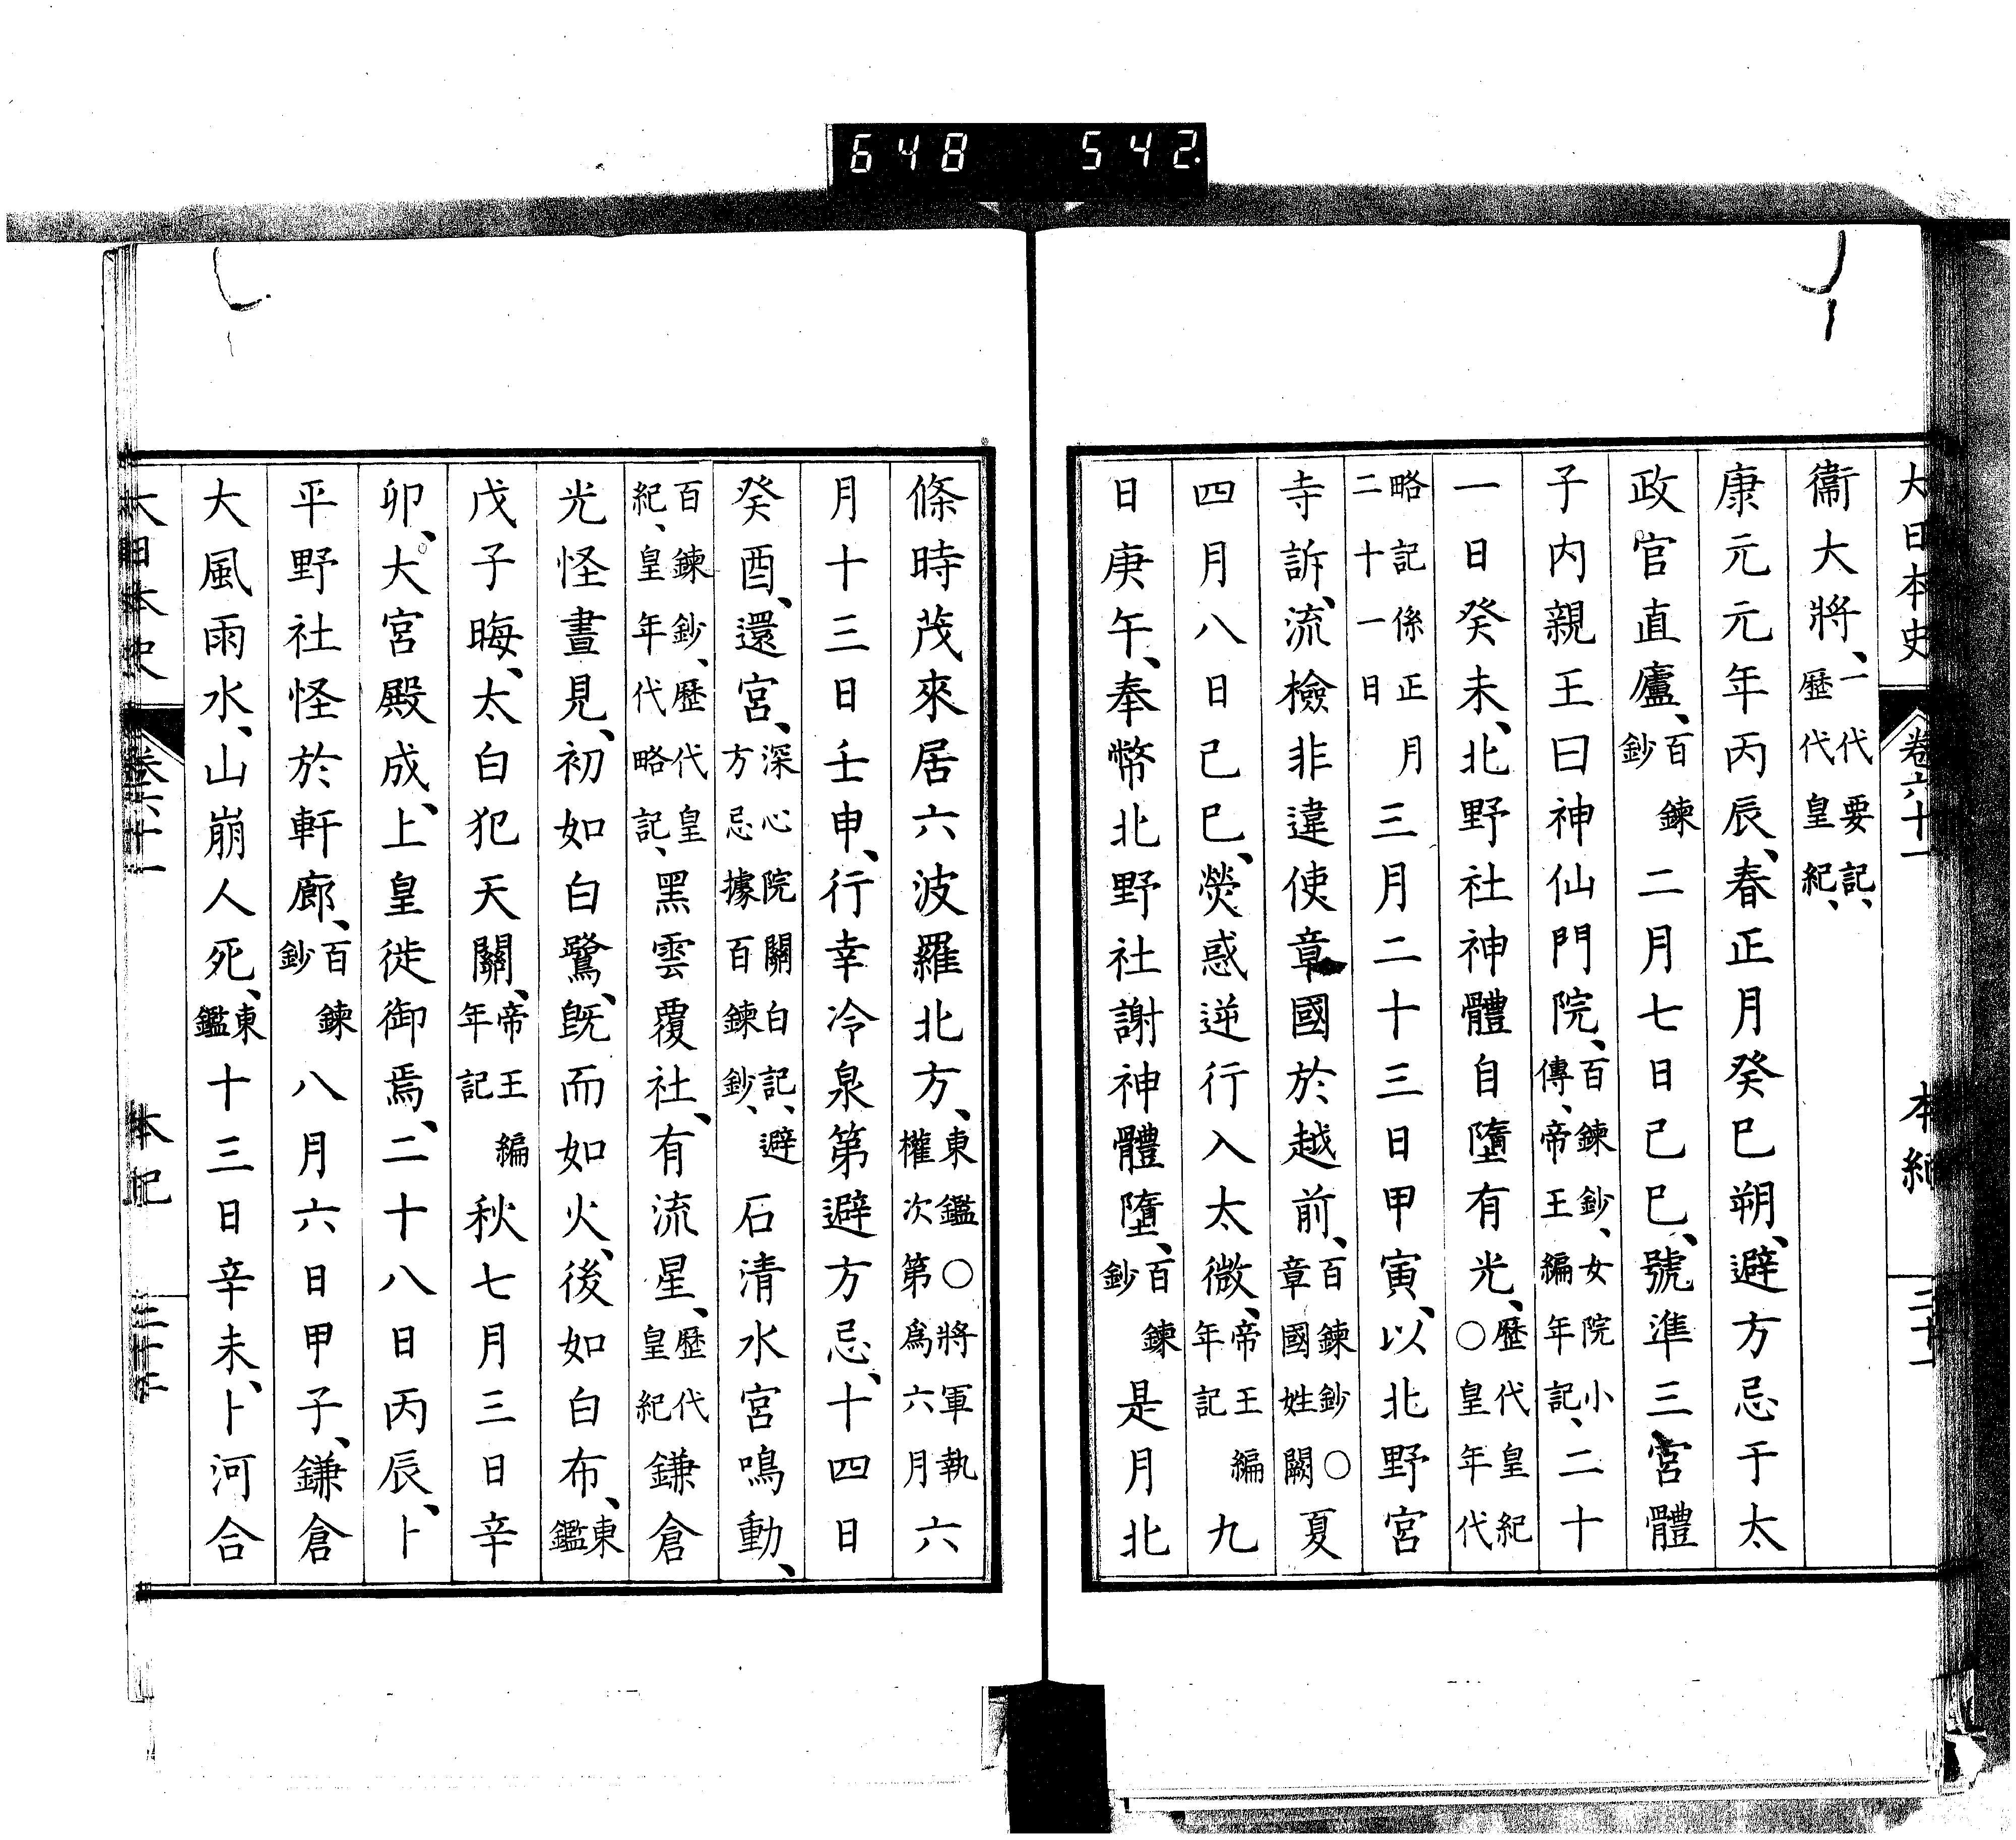 648 542
大日本史 卷六十一 本紀
衞大將、一代要記、歷代皇紀、
康元元年丙辰、春正月癸巳朔、避方忌于太
政官直廬、百鍊鈔二月七日己巳、號準三宮體
子内親王曰神仙門院、百鍊鈔、女院小傳、帝王編年記、二十
一日癸未、北野社神體自墮有光、歷代皇紀○皇年代
略記係正月二十一日三月二十三日甲寅、以北野宮
寺訴、流檢非違使章國於越前、百鍊鈔○章國姓闕夏
四月八日己巳、熒惑逆行入太微、帝王編年記九
日庚午、奉幣北野社謝神體墮、百鍊鈔是月北
條時茂來居六波羅北方、東鑑○將軍執權次第爲六月六
月十三日壬申、行幸冷泉第避方忌、十四日
癸酉、還宮、深心院關白記、避方忌據百鍊鈔、石清水宮鳴動、
百鍊鈔、歷代皇紀、皇年代略記、黑雲覆社、有流星、歷代皇紀鎌倉
光怪晝見、初如白鷺、既而如火、後如白布、東鑑
戊子晦、太白犯天關、帝王編年記秋七月三日辛
卯、大宮殿成、上皇徙御焉、二十八日丙辰、卜
平野社怪於軒廊、百鍊鈔八月六日甲子、鎌倉
大風雨水、山崩人死、東鑑十三日辛未、卜河合
大日本史 卷六十一 本紀